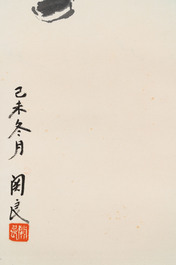 己未冬月
関良